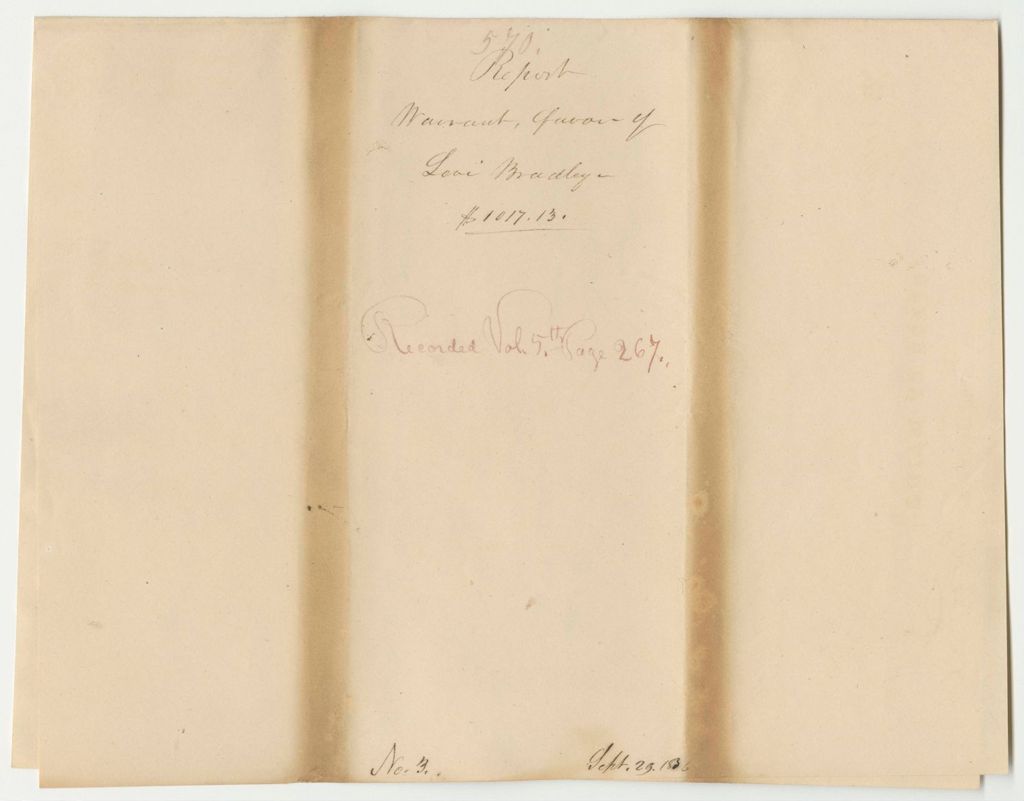 570.
Report
Warrant, favor of
Levi Bradley—
$1017.13.
Recorded Vol. 5.th Page 267.
No. 3.
Sept. 29. 1836